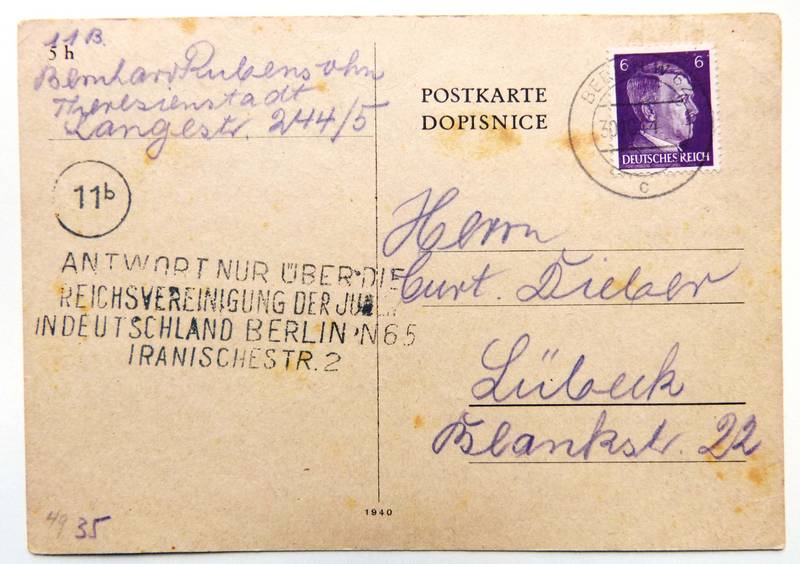 11B.
5 h
Bernhard Rubensohn
Theresienstadt
Langestr. 244/5
11b
ANTWORT NUR ÜBER DIE
REICHSVEREINIGUNG DER JUDEN
IN DEUTSCHLAND BERLIN N65
IRANISCHESTR. 2
POSTKARTE
DOPISNICE
6 6
DEUTSCHES REICH
BERLIN
c
Herrn
Curt. Dieber
Lübeck
Blankstr. 22
49 35
1940